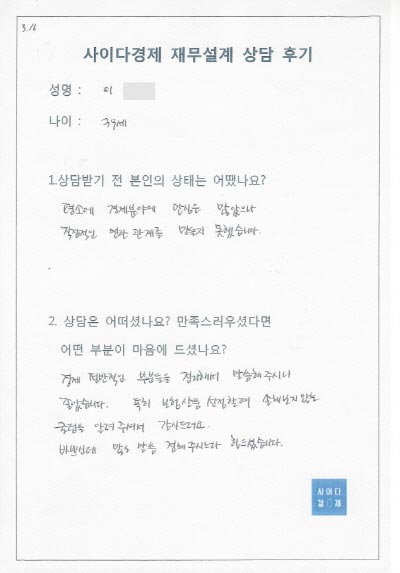 3.16
사이다경제 재무설계 상담 후기
성명 : 이
나이 : 39세
1.상담받기 전 본인의 상태는 어땠나요?
평소에 경제분야에 관심은 많았으나
직접적인 연관 관계를 맺지 못했습니다.
2. 상담은 어떠셨나요? 만족스러우셨다면
어떤 부분이 마음에 드셨나요?
경제 전반적인 부분들을 정리해서 말씀해주시니
좋았습니다. 특히 보험상품 선정할때 손해나지 않는
알려 주셔서 감사드려요.
바쁘신데 많은 말씀 전해주시느라 힘드셨습니다.
사이다
경제